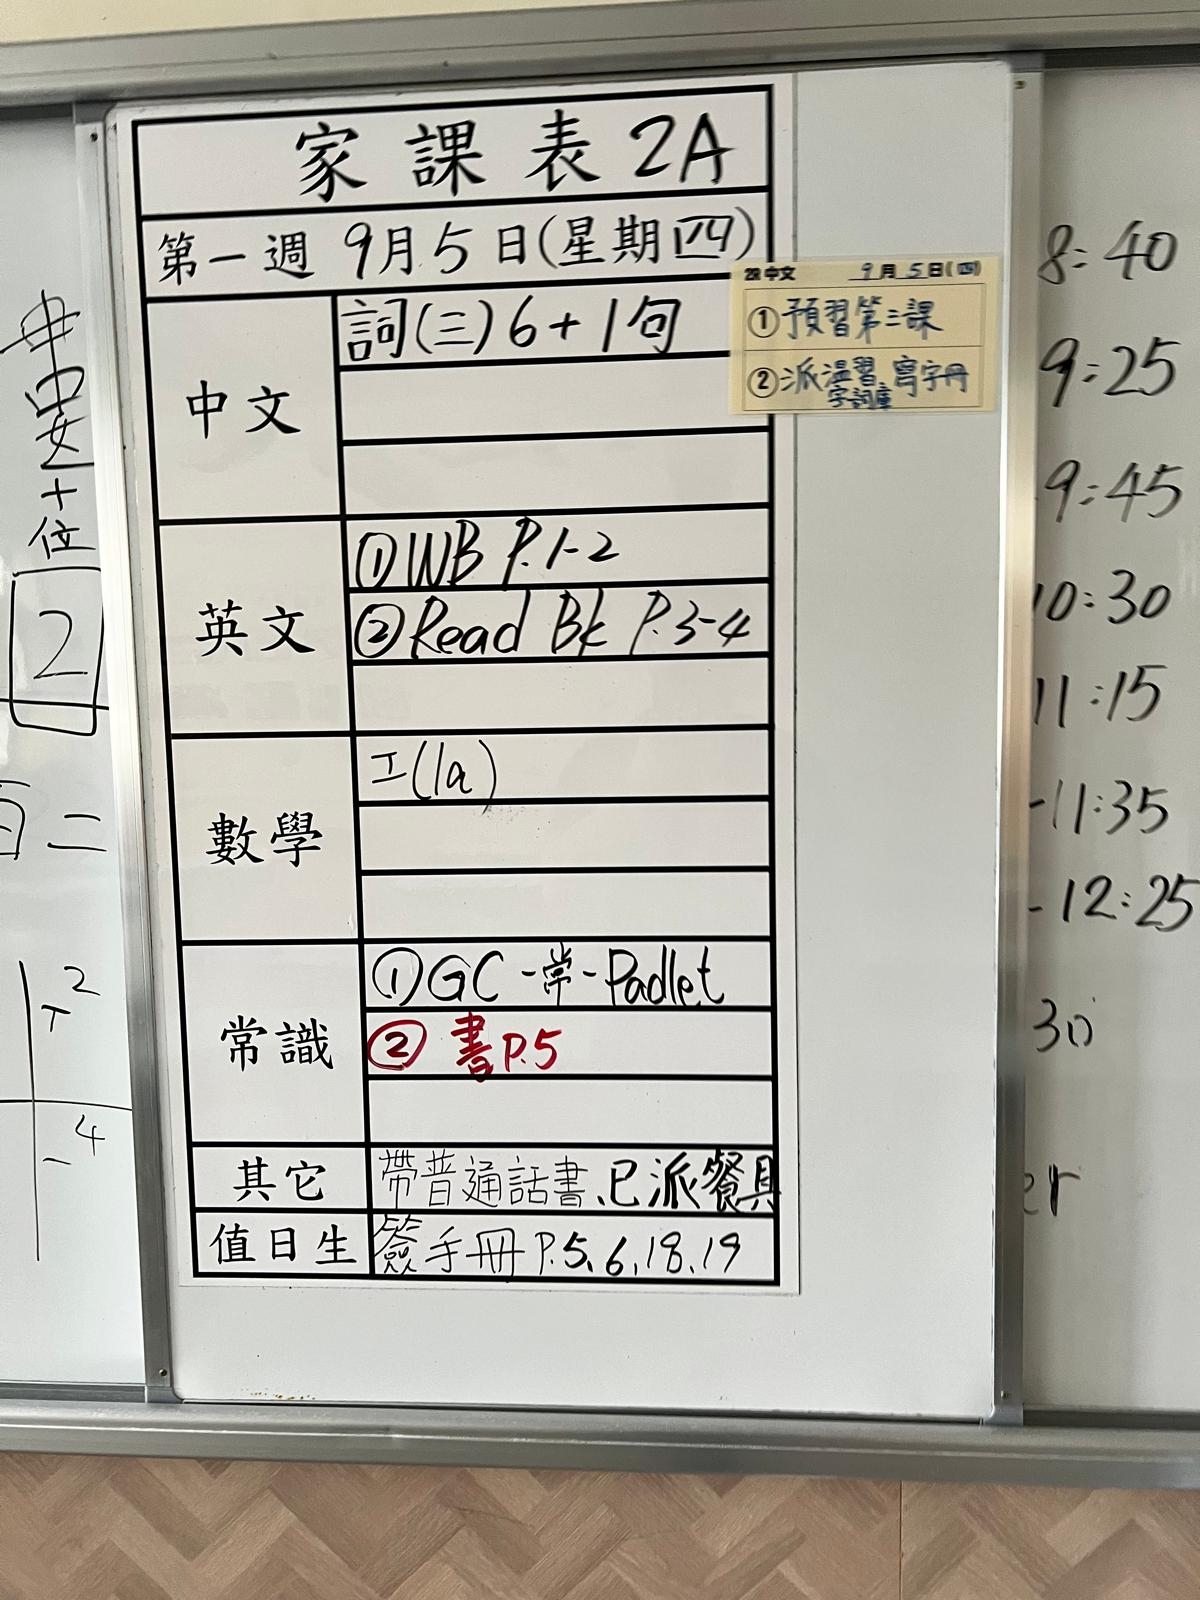 家課表 2A
第一週 9月5日(星期四)
中文
詞(三)6+1句
中文 9月5日(四)
①預習第三課
②派溫習、寫字冊
字詞庫
英文
①WB P.1-2
②Read Bk P.3-4
數學
工(1a)
常識
①GC-常-Padlet
②書P.5
其它
帶普通話書、已派餐具
值日生
簽手冊 P.5、6、18、19
十
位
2
百二
2
4
8:40
9:25
9:45
10:30
11:15
-11:35
-12:25
30
er